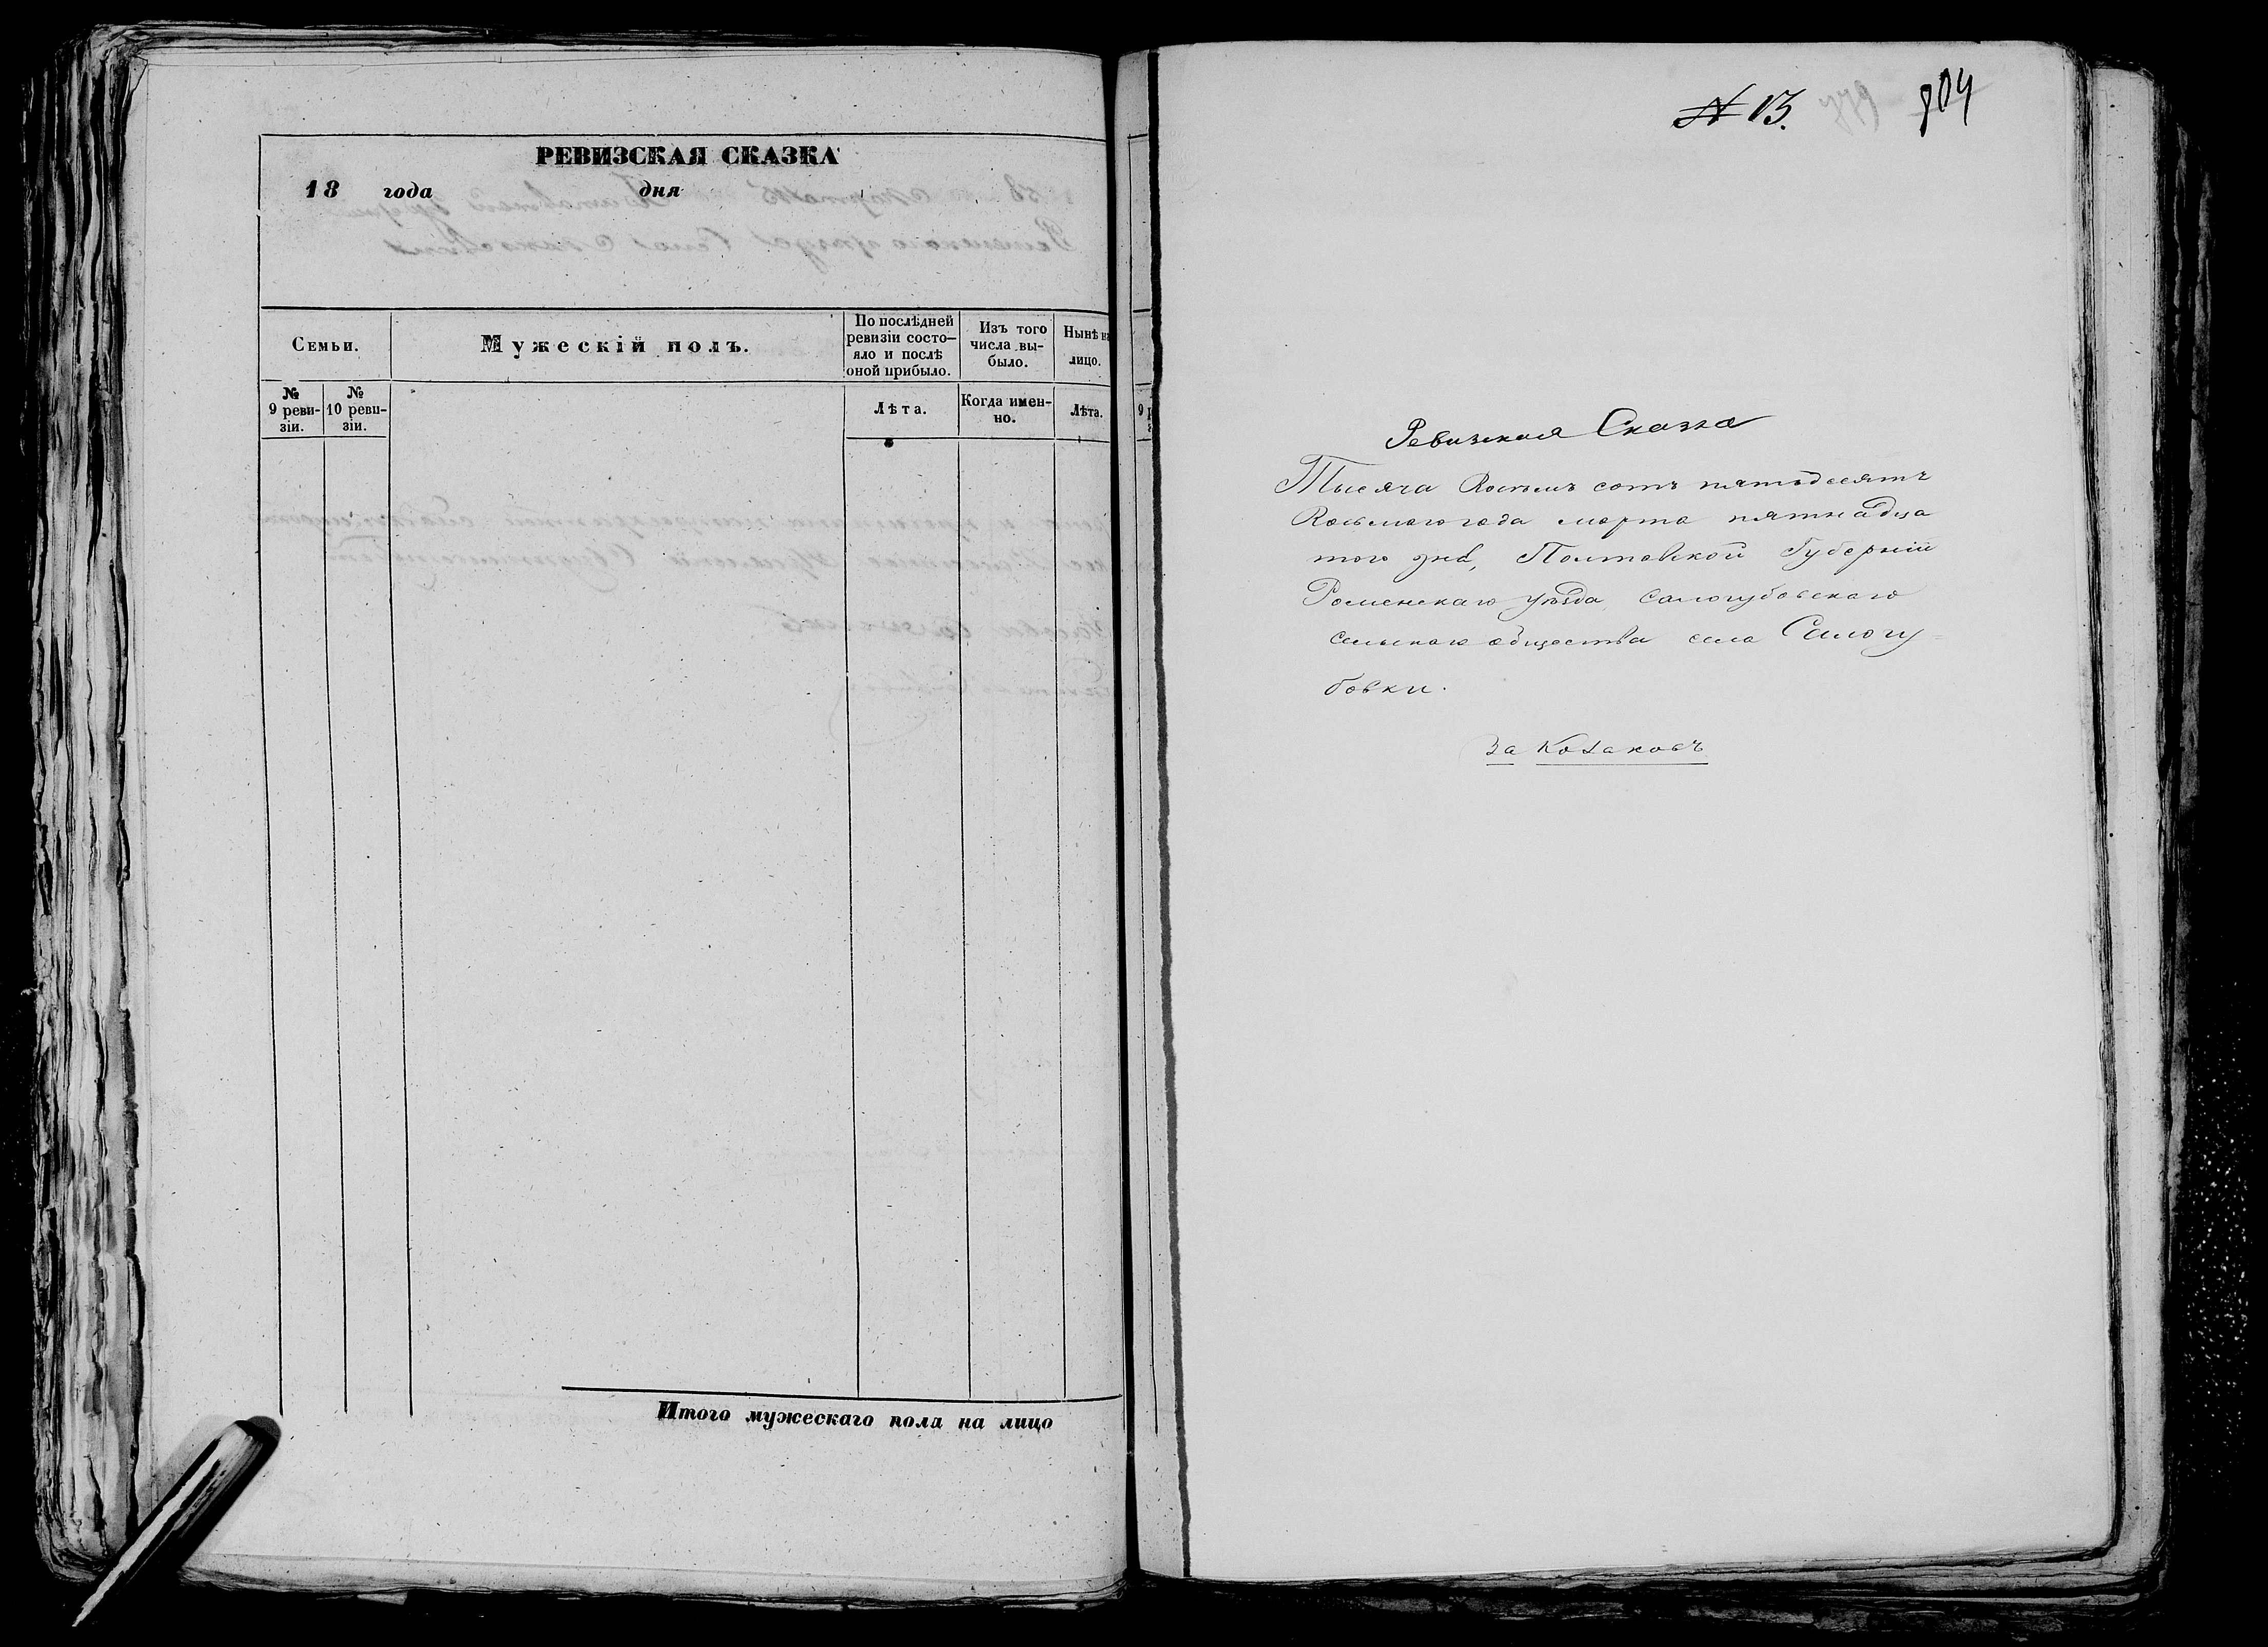 РЕВИЗСКАЯ СКАЗКА
18 года дня
Семьи.
Мужескій полъ.
По послѣдней ревизіи состо-
яло и послѣ
оной прибыло.
Изъ того
числа вы-
было.
Нынѣ
лицо.
№
9 реви-
зіи.
№
10 реви-
зіи.
Лѣта.
Когда имен-
но.
Лѣта.
Итого мужескаго пола на лицо
№ 13. 904
Ревизская Сказка
Тысяча Восемь сотъ пятьдесятъ
Восьмого года марта пятнадца
того дня, Полтавской Губерніи
Роменскаго уѣзда Самогубовскаго
сельскаго общества села Самогу-
бовки.
За Козаковъ